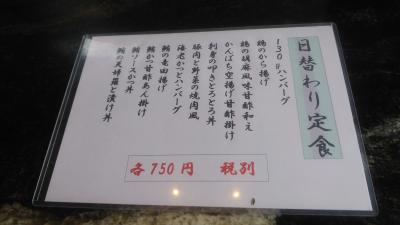 日替わり定食
130gハンバーグ
鶏のから揚げ
鶏の胡麻風味甘酢和え
かんぱち空揚げ甘酢掛け
刺身の叩きとろとろ丼
豚肉と野菜の焼肉風
海老かつとハンバーグ
鮪の竜田揚げ
鮪かつ甘酢あん掛け
鮪ソースかつ丼
鮪の天婦羅と漬け丼
各750円 税別